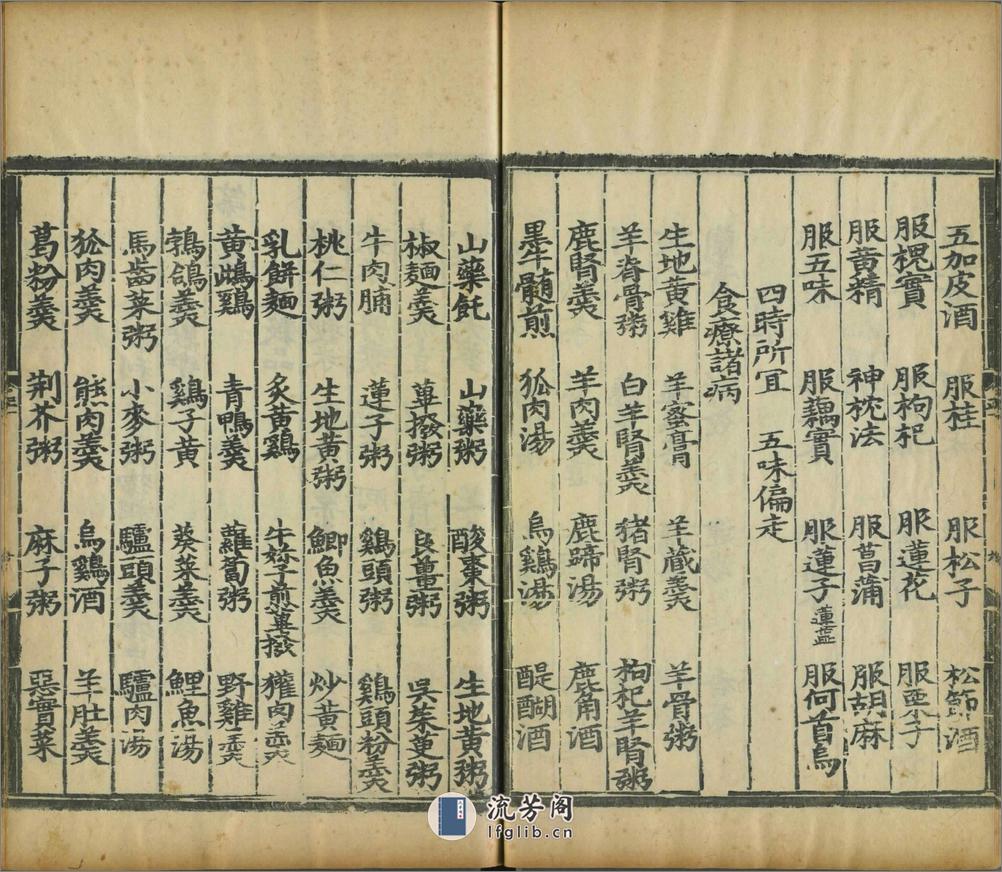 五加皮酒 服桂 服松子 松節酒
服槐實 服枸杞 服蓮花 服栗子
服黃精 神枕法 服菖蒲 服胡麻
服五味 服藕實 服蓮子 蓮蕊 服何首烏
四時所宜 五味偏走
食療諸病
生地黃雞 羊蜜膏 羊藏羹 羊骨粥
羊脊骨粥 白羊腎羹 猪腎粥 枸杞羊腎粥
鹿腎羹 羊肉羹 鹿蹄湯 鹿角酒
黑牛髓煎 狐肉湯 烏鷄湯 醍醐酒
山藥飥 山藥粥 酸棗粥 生地黃粥
椒麵羹 蓽撥粥 良薑粥 吳茱萸粥
牛肉脯 蓮子粥 鷄頭粥 鷄頭粉羹
桃仁粥 生地黃粥 鯽魚羹 炒黃麵
乳餅麵 炙黃鷄 牛妳子煎蓽撥 獾肉羹
黃鴡鷄 青鴨羹 蘿蔔粥 野雞羹
鵓鴿羹 鷄子黃 葵菜羹 鯉魚湯
馬齒菜粥 小麥粥 驢頭羹 驢肉湯
狐肉羹 熊肉羹 烏鷄酒 羊肚羹
葛粉羹 荆芥粥 麻子粥 惡實菜
流芳阁
lfglib.cn